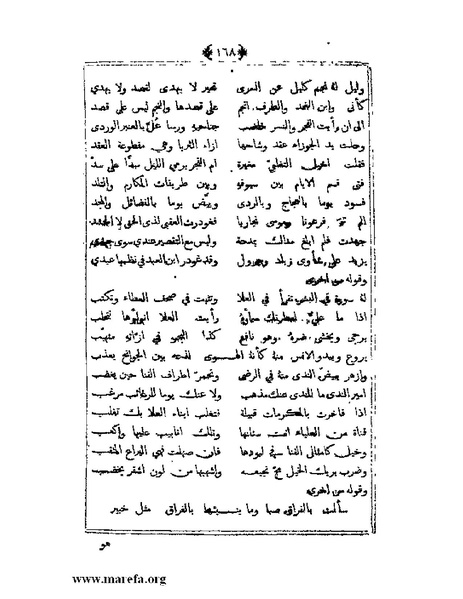 ﴿١٦٨﴾
وليل له نجم كليل عن السرى تحير لا يهدى لقصد ولا يهدي
كأنى وابن الغمد والطرف انجم على قصدها والنجم ليس على قصد
الى ان رأيت الفجر والنسر جناحيه ورسا عُلّ بالعنبر الوردى
وحلت يد الجوزاء عقد وشاحها ازاء الثريا وهى مقطوعة العقد
فقلت اخيل التغلبي مغيرة ام الفجر يرمي الليل سدًّا على سدّ
فتى قسم الايام بين سيوفه وبين طريفات المكارم والتلد
فسود يوما بالعجاج وبالردى وبيّض يوما بالفضائل والمجد
الم تر فرعونا وموسى تجاريا فغودرت العقبى لذى الحق
جهدت فلم ابلغ علاك بمدحة وليس مع التقصير عندي سوى جهدي
يزيد على وزيد وجرول وقد غودر ابن العبد في نظمها عبدي
وقوله من اخرى
له سورة في البشر تقرأ في العلا وتثبت في صحف العطاء وتكتب
اذا ما علىّ امطرتك سماؤه رأيت العلا انواؤها تتحلب
يرجى ويخشى ضره وهو نافع كذا البحر في ازّاته متهيّب
يروع ويبدو الانس منه كأنه الهوى لذعه بين الجوانح يعذب
وازهر يبيضّ الندى منه في الرضى وتحمرّ اطراف القنا حين يغضب
امير الندى ما للندى عنك مذهب ولا عنك يوما للرغائب مرغب
اذا فاخرت بالمكرمات قبيلة فتغلب ابناء العلا بك تغلب
قناة من العلياء انت سنانها وتلك انابيب عليها واكعب
وخيل كامثال القنا لبودها فان صهلت فهي اليراع المثقب
وضرب يريك الخيل نجيعه واشهبها من لون اشقر يخضب
وقوله من اخرى
سألت بالفراق صبا وما ينبئها بالفراق مثل خبير
هو
www.marefa.org